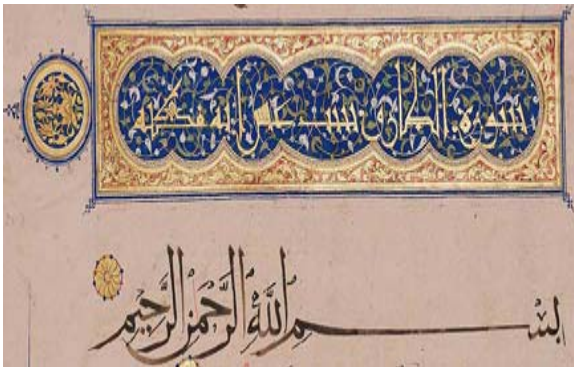 سورة الطارق ست عشر اية مكية
بِسْمِ اللَّهِ الرَّحْمَنِ الرَّحِيمِ